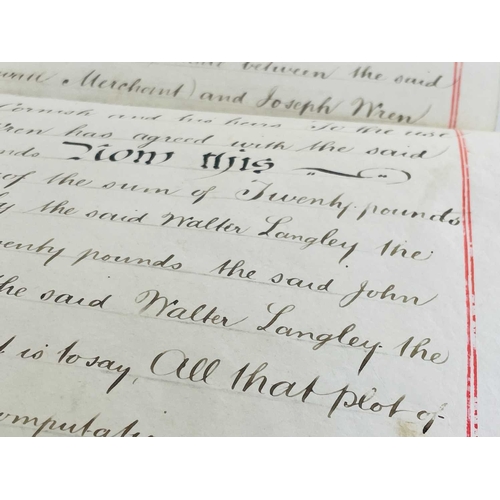 between the said
Merchant) and Joseph Wren
Cornish and his heirs To the use
Wren has agreed with the said
Now this
of the sum of Twenty pounds
the said Walter Langley the
pounds the said John
the said Walter Langley the
is to say, All that plot of